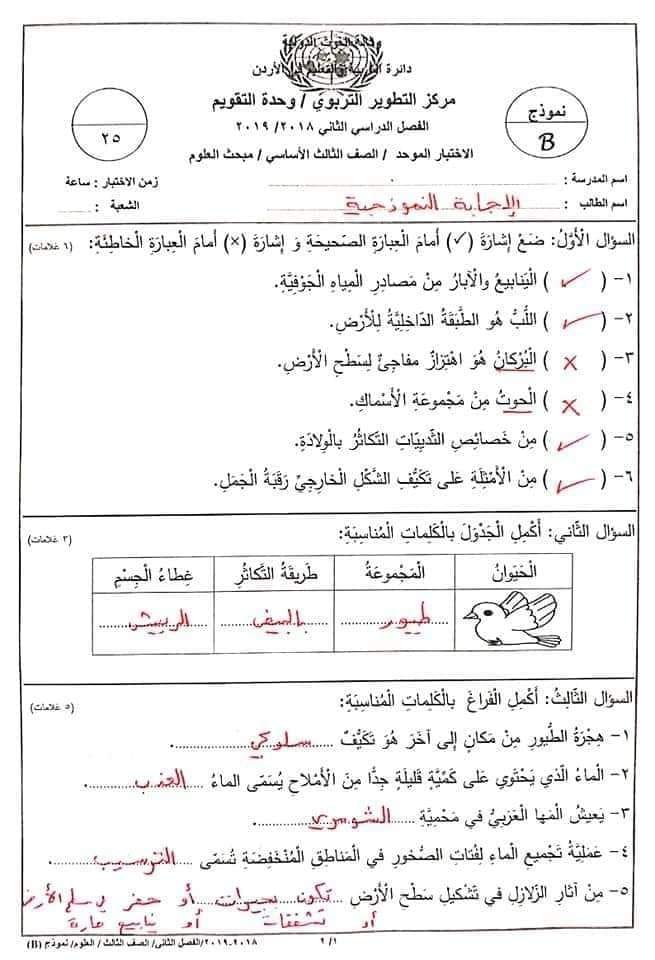 وكالة الغوث الدولية
دائرة التربية والتعليم في الأردن
مركز التطوير التربوي / وحدة التقويم
الفصل الدراسي الثاني ٢٠١٨/ ٢٠١٩
الاختبار الموحد / الصف الثالث الأساسي / مبحث العلوم
نموذج
B
٢٥
اسم المدرسة : زمن الاختبار : ساعة
اسم الطالب : الإجابة النموذجية الشعبة :
السؤال الأَوَّلُ: ضَعْ إشارَةَ (✓) أَمامَ العِبارَةِ الصَّحيحَةِ وَ إشارَةَ (×) أَمامَ العِبارَةِ الخاطِئَةِ: (٦ علامات)
١- ( ✓ ) الْيَنابيعُ والْآبارُ مِنْ مَصادِرِ المِياهِ الْجَوْفِيَّةِ.
٢- ( ✓ ) اللُّبُّ هُوَ الطَّبَقَةُ الدّاخِلِيَّةُ لِلْأَرْضِ.
٣- ( × ) الْبُرْكانُ هُوَ اهْتِزازٌ مفاجِئٌ لِسَطْحِ الْأَرْضِ.
٤- ( × ) الْحوتُ مِنْ مَجْموعَةِ الْأَسْماكِ.
٥- ( ✓ ) مِنْ خَصائِصِ الثَّدِيِيّاتِ التَّكاثُرُ بالْوِلادَةِ.
٦- ( ✓ ) مِنَ الْأَمْثِلَةِ عَلى تَكَيُّفِ الشَّكْلِ الْخارِجِيِّ رَقَبَةُ الْجَمَلِ.
السؤال الثّاني: أُكْمِلُ الْجَدْوَلَ بالْكَلِماتِ الْمُناسِبَةِ: (٣ علامات)
الْحَيَوانُ الْمَجْموعَةُ طَريقَةُ التَّكاثُرِ غِطاءُ الْجِسْمِ
طيور بالبيض الريش
السؤال الثّالِثُ: أُكْمِلُ الْفَراغَ بالْكَلِماتِ الْمُناسِبَةِ: (٥ علامات)
١- هِجْرَةُ الطُّيورِ مِنْ مَكانٍ إلى آخَرَ هُوَ تَكَيُّفٌ سلوكي.
٢- الْماءُ الّذي يَحْتَوي عَلى كَمِّيَّةٍ قَليلَةٍ جِدًّا مِنَ الْأَمْلاحِ يُسَمّى الماءُ العذب.
٣- يَعيشُ الْمَها الْعَرَبِيُّ في مَحْمِيَّةِ الشومري.
٤- عَمَلِيَّةُ تَجْميعِ الْماءِ لِفُتاتِ الصُّخورِ في الْمَناطِقِ الْمُنْخَفِضَةِ تُسَمّى الترسيب.
٥- مِنْ آثارِ الزَّلازِلِ في تَشْكيلِ سَطْحِ الْأَرْضِ تكون بحيرات أو حفر في سطح الأرض
أو تشققات أو ينابيع حارة
١/ ٢
٢٠١٨-٢٠١٩/الفصل الثاني/ الصف الثالث / العلوم/ نموذج (B)